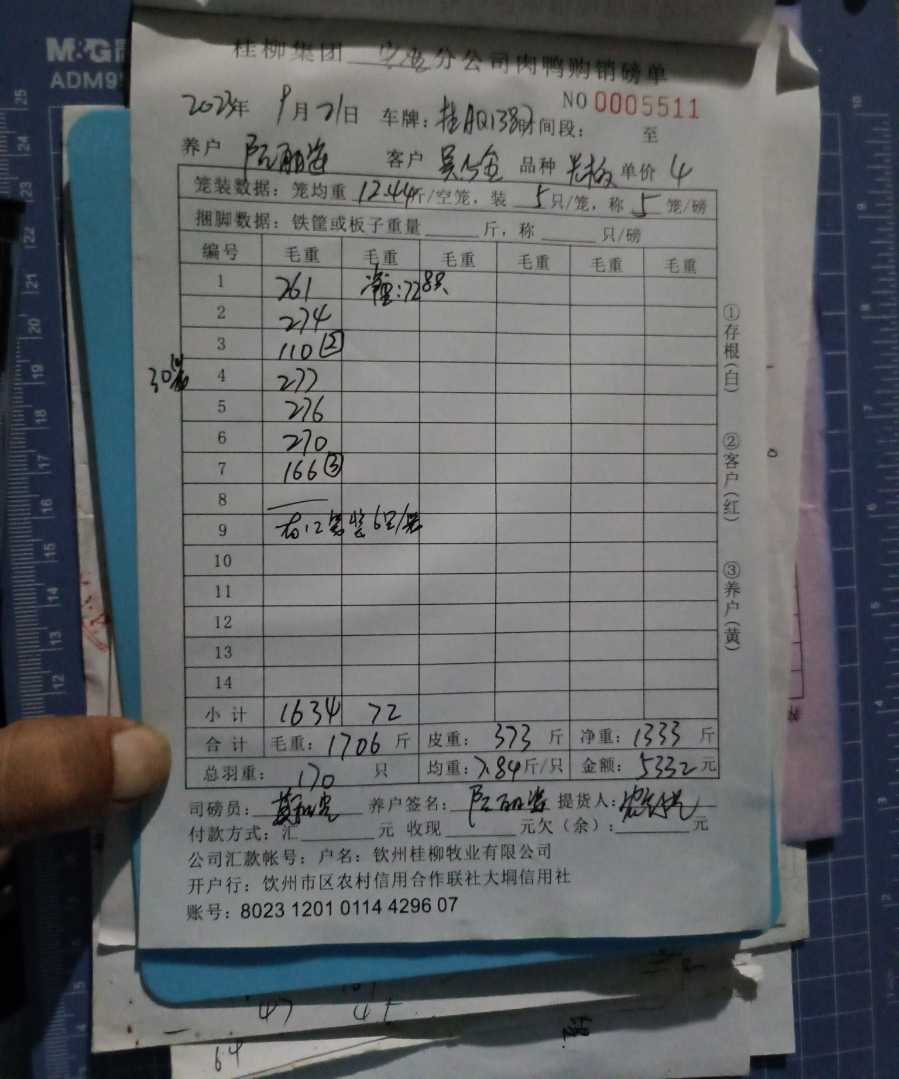 M&G
ADM9
桂柳集团 分公司肉鸭购销磅单
NO 0005511
2023年 9月21日 车牌：桂AQ1382 时间段： 至
养户 阮丽 客户 品种 单价 4
笼装数据：笼均重 12.44斤/空笼，装 5只/笼，称 5 笼/磅
捆脚数据：铁筐或板子重量 斤，称 只/磅
编号 毛重 毛重 毛重 毛重 毛重 毛重
1 261 :72 8只
2 274
3 110 ②
30 4 277
5 276
6 270
7 166 ③
8
9 有12笼装6只/笼
10
11
12
13
14
小计 1634 72
合计 毛重：1706 斤 皮重：373 斤 净重：1333 斤
总羽重： 170 只 均重：7.84斤/只 金额：5332元
司磅员： 养户签名：阮丽 提货人：
付款方式：汇 元 收现 元欠（余）： 元
公司汇款帐号：户名：钦州桂柳牧业有限公司
开户行：钦州市区农村信用合作联社大垌信用社
账号：8023 1201 0114 4296 07
①存根（白）
②客户（红）
③养户（黄）
47
64